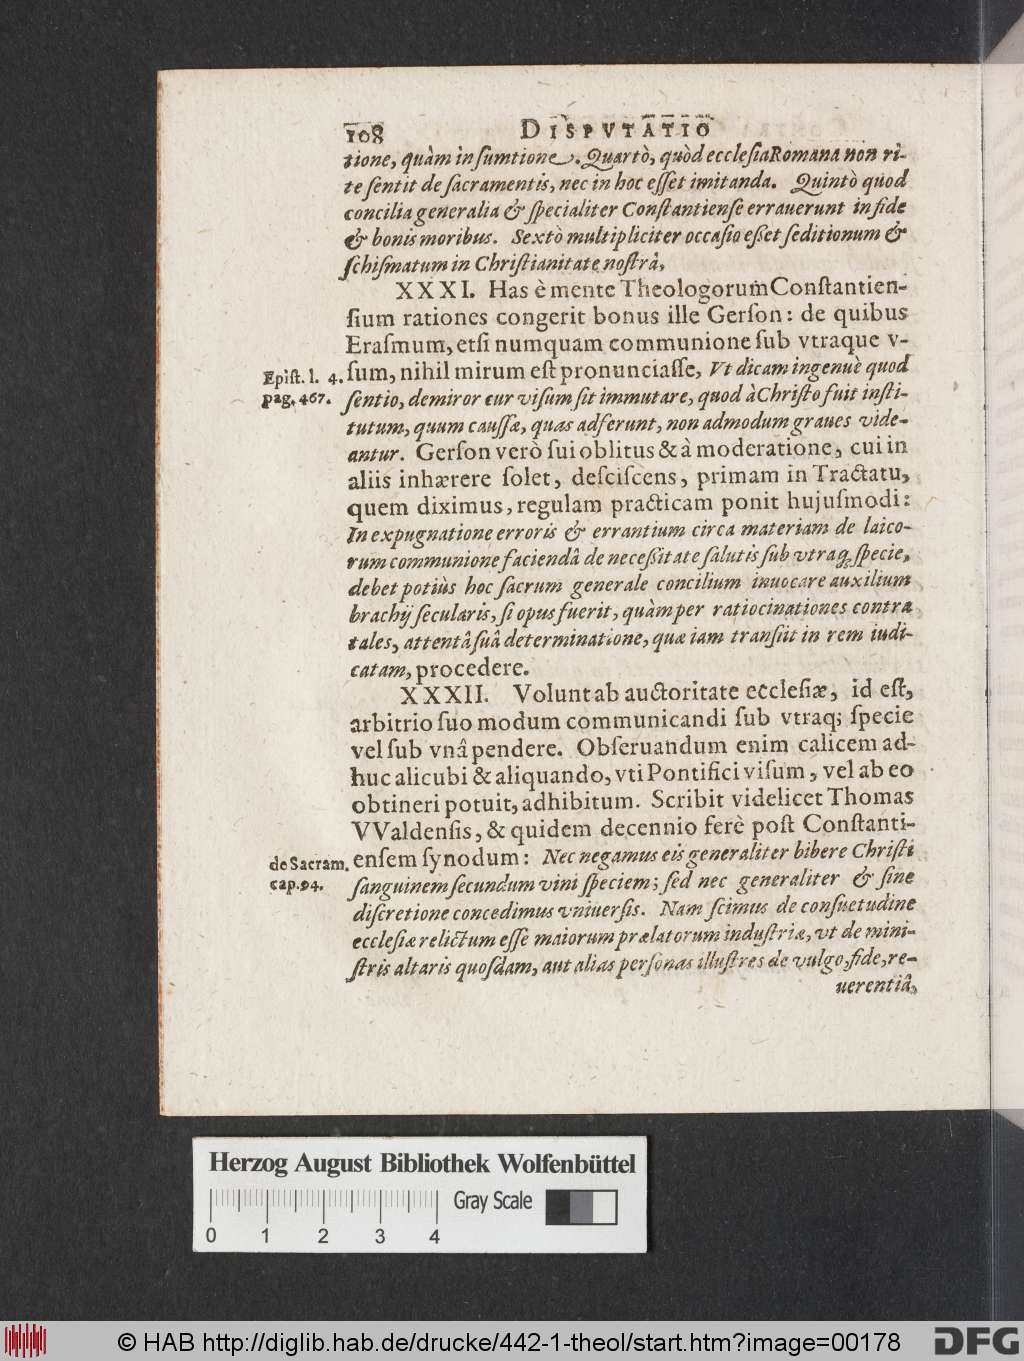 108 DISPVTATIO
tione, quàm in sumtione. Quartò, quòd ecclesia Romana non ri-
te sentit de sacramentis, nec in hoc esset imitanda. Quintò quod
concilia generalia & specialiter Constantiense errauerunt in fide
& bonis moribus. Sextò multipliciter occasio esset seditionum &
schismatum in Christianitate nostrâ,
XXXI. Has è mente Theologorum Constantien-
sium rationes congerit bonus ille Gerson: de quibus
Erasmum, etsi numquam communione sub vtraque v-
sum, nihil mirum est pronunciasse, Vt dicam ingenuè quod
Epist. l. 4.
pag. 467.
sentio, demiror cur visum sit immutare, quod à Christo fuit insti-
tutum, quum caussæ, quas adferunt, non admodum graues vide-
antur. Gerson verò sui oblitus & à moderatione, cui in
aliis inhærere solet, desciscens, primam in Tractatu,
quem diximus, regulam practicam ponit hujusmodi:
In expugnatione erroris & errantium circa materiam de laico-
rum communione faciendâ de necessitate salutis sub vtraq; specie,
debet potiùs hoc sacrum generale concilium inuocare auxilium
brachij secularis, si opus fuerit, quàm per ratiocinationes contra
tales, attentâ suâ determinatione, quæ iam transiit in rem iudi-
catam, procedere.
XXXII. Volunt ab auctoritate ecclesiæ, id est,
arbitrio suo modum communicandi sub vtraq; specie
vel sub vnâ pendere. Obseruandum enim calicem ad-
huc alicubi & aliquando, vti Pontifici visum, vel ab eo
obtineri potuit, adhibitum. Scribit videlicet Thomas
VValdensis, & quidem decennio ferè post Constanti-
ensem synodum: Nec negamus eis generaliter bibere Christi
de Sacram.
cap. 94.
sanguinem secundum vini speciem; sed nec generaliter & sine
discretione concedimus vniuersis. Nam scimus de consuetudine
ecclesiæ relictum esse maiorum prælatorum industriæ, vt de mini-
stris altaris quosdam, aut alias personas illustres de vulgo, fide, re-
uerentiâ,
Herzog August Bibliothek Wolfenbüttel
Gray Scale
0 1 2 3 4
© HAB http://diglib.hab.de/drucke/442-1-theol/start.htm?image=00178
DFG
DFG